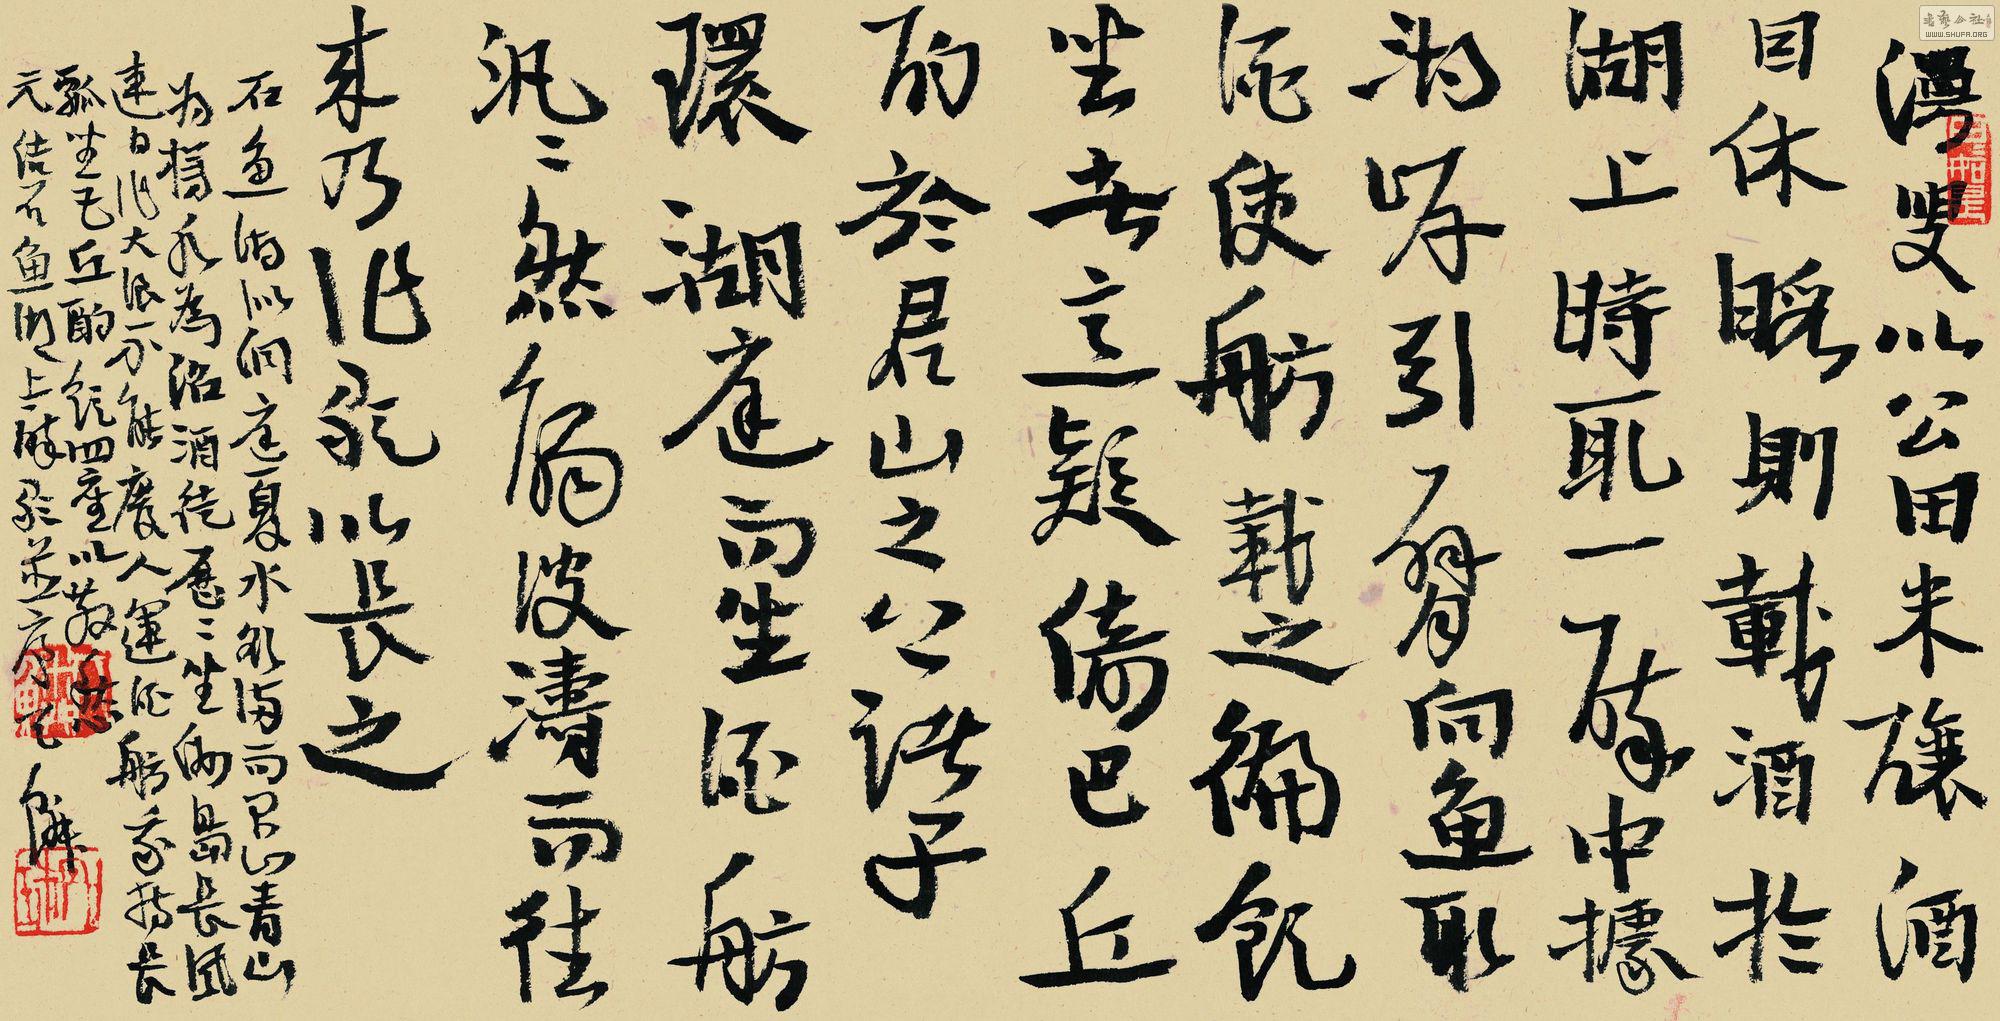 漫叟以公田米釀酒
因休暇則載酒於
湖上時取一醉中據
湖岸引臂向魚取
酒使舫載之徧飲
坐者意疑倚巴丘
酌於君山之上諸子
環湖庭而坐酒舫
汎〻然觸波濤而往
来乃作歌以長之
石魚湖似洞庭夏水欲满而君山青山
為樽水為沼酒徒歷〻坐洲島長風
連日作大浪不能廢人運酒舫我持長
瓢坐巴丘酌飲四座以散愁
元結石魚湖上醉歌並序
書藝公社
WWW.SHUFA.ORG